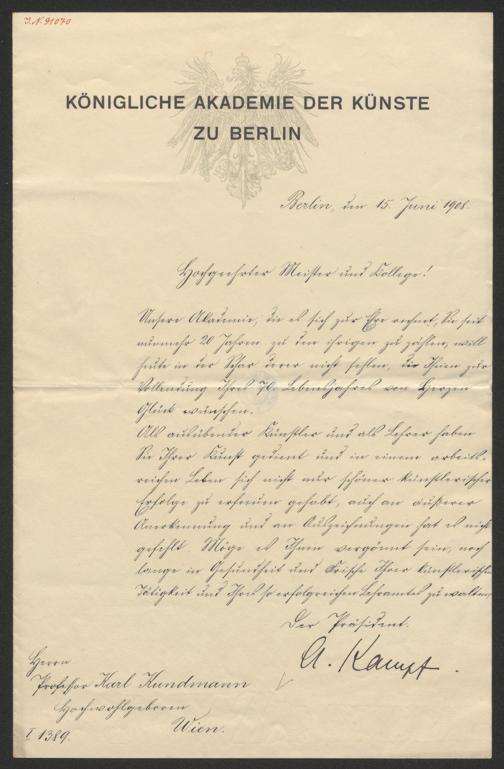 I.N. 91070
KÖNIGLICHE AKADEMIE DER KÜNSTE
ZU BERLIN
Berlin, den 15. Juni 1908.
Hochgeehrter Meister und Kollege!
Unsere Akademie, die es sich zur Ehre rechnet, Sie seit
nunmehr 20 Jahren zu den ihrigen zu zählen, will
heute in der Schar derer nicht fehlen, die Ihnen zur
Vollendung Ihres 70. Lebensjahres von Herzen
Glück wünschen.
Als ausübender Künstler und als Lehrer haben
Sie Ihrer Kunst gedient und in einem arbeits-
reichen Leben sich nicht nur schöner künstlerischer
Erfolge zu erfreuen gehabt, auch an äußerer
Anerkennung und an Auszeichnungen hat es nicht
gefehlt. Möge es Ihnen vergönnt sein, noch
lange in Gesundheit und Frische Ihrer künstlerischen
Tätigkeit und Ihres so erfolgreichen Lehramtes zu walten.
Der Präsident.
A. Kampf.
Herrn
Professor Karl Kundmann
Hochwohlgeboren
Wien.
I. 1389.